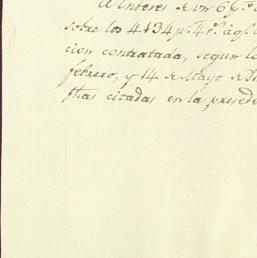 Interes de un 6 p.º
sobre los 4134 p.s 4 r.s
cion contratada, segun lo
febrero, y 14 de Mayo de
fhas citadas en la presede